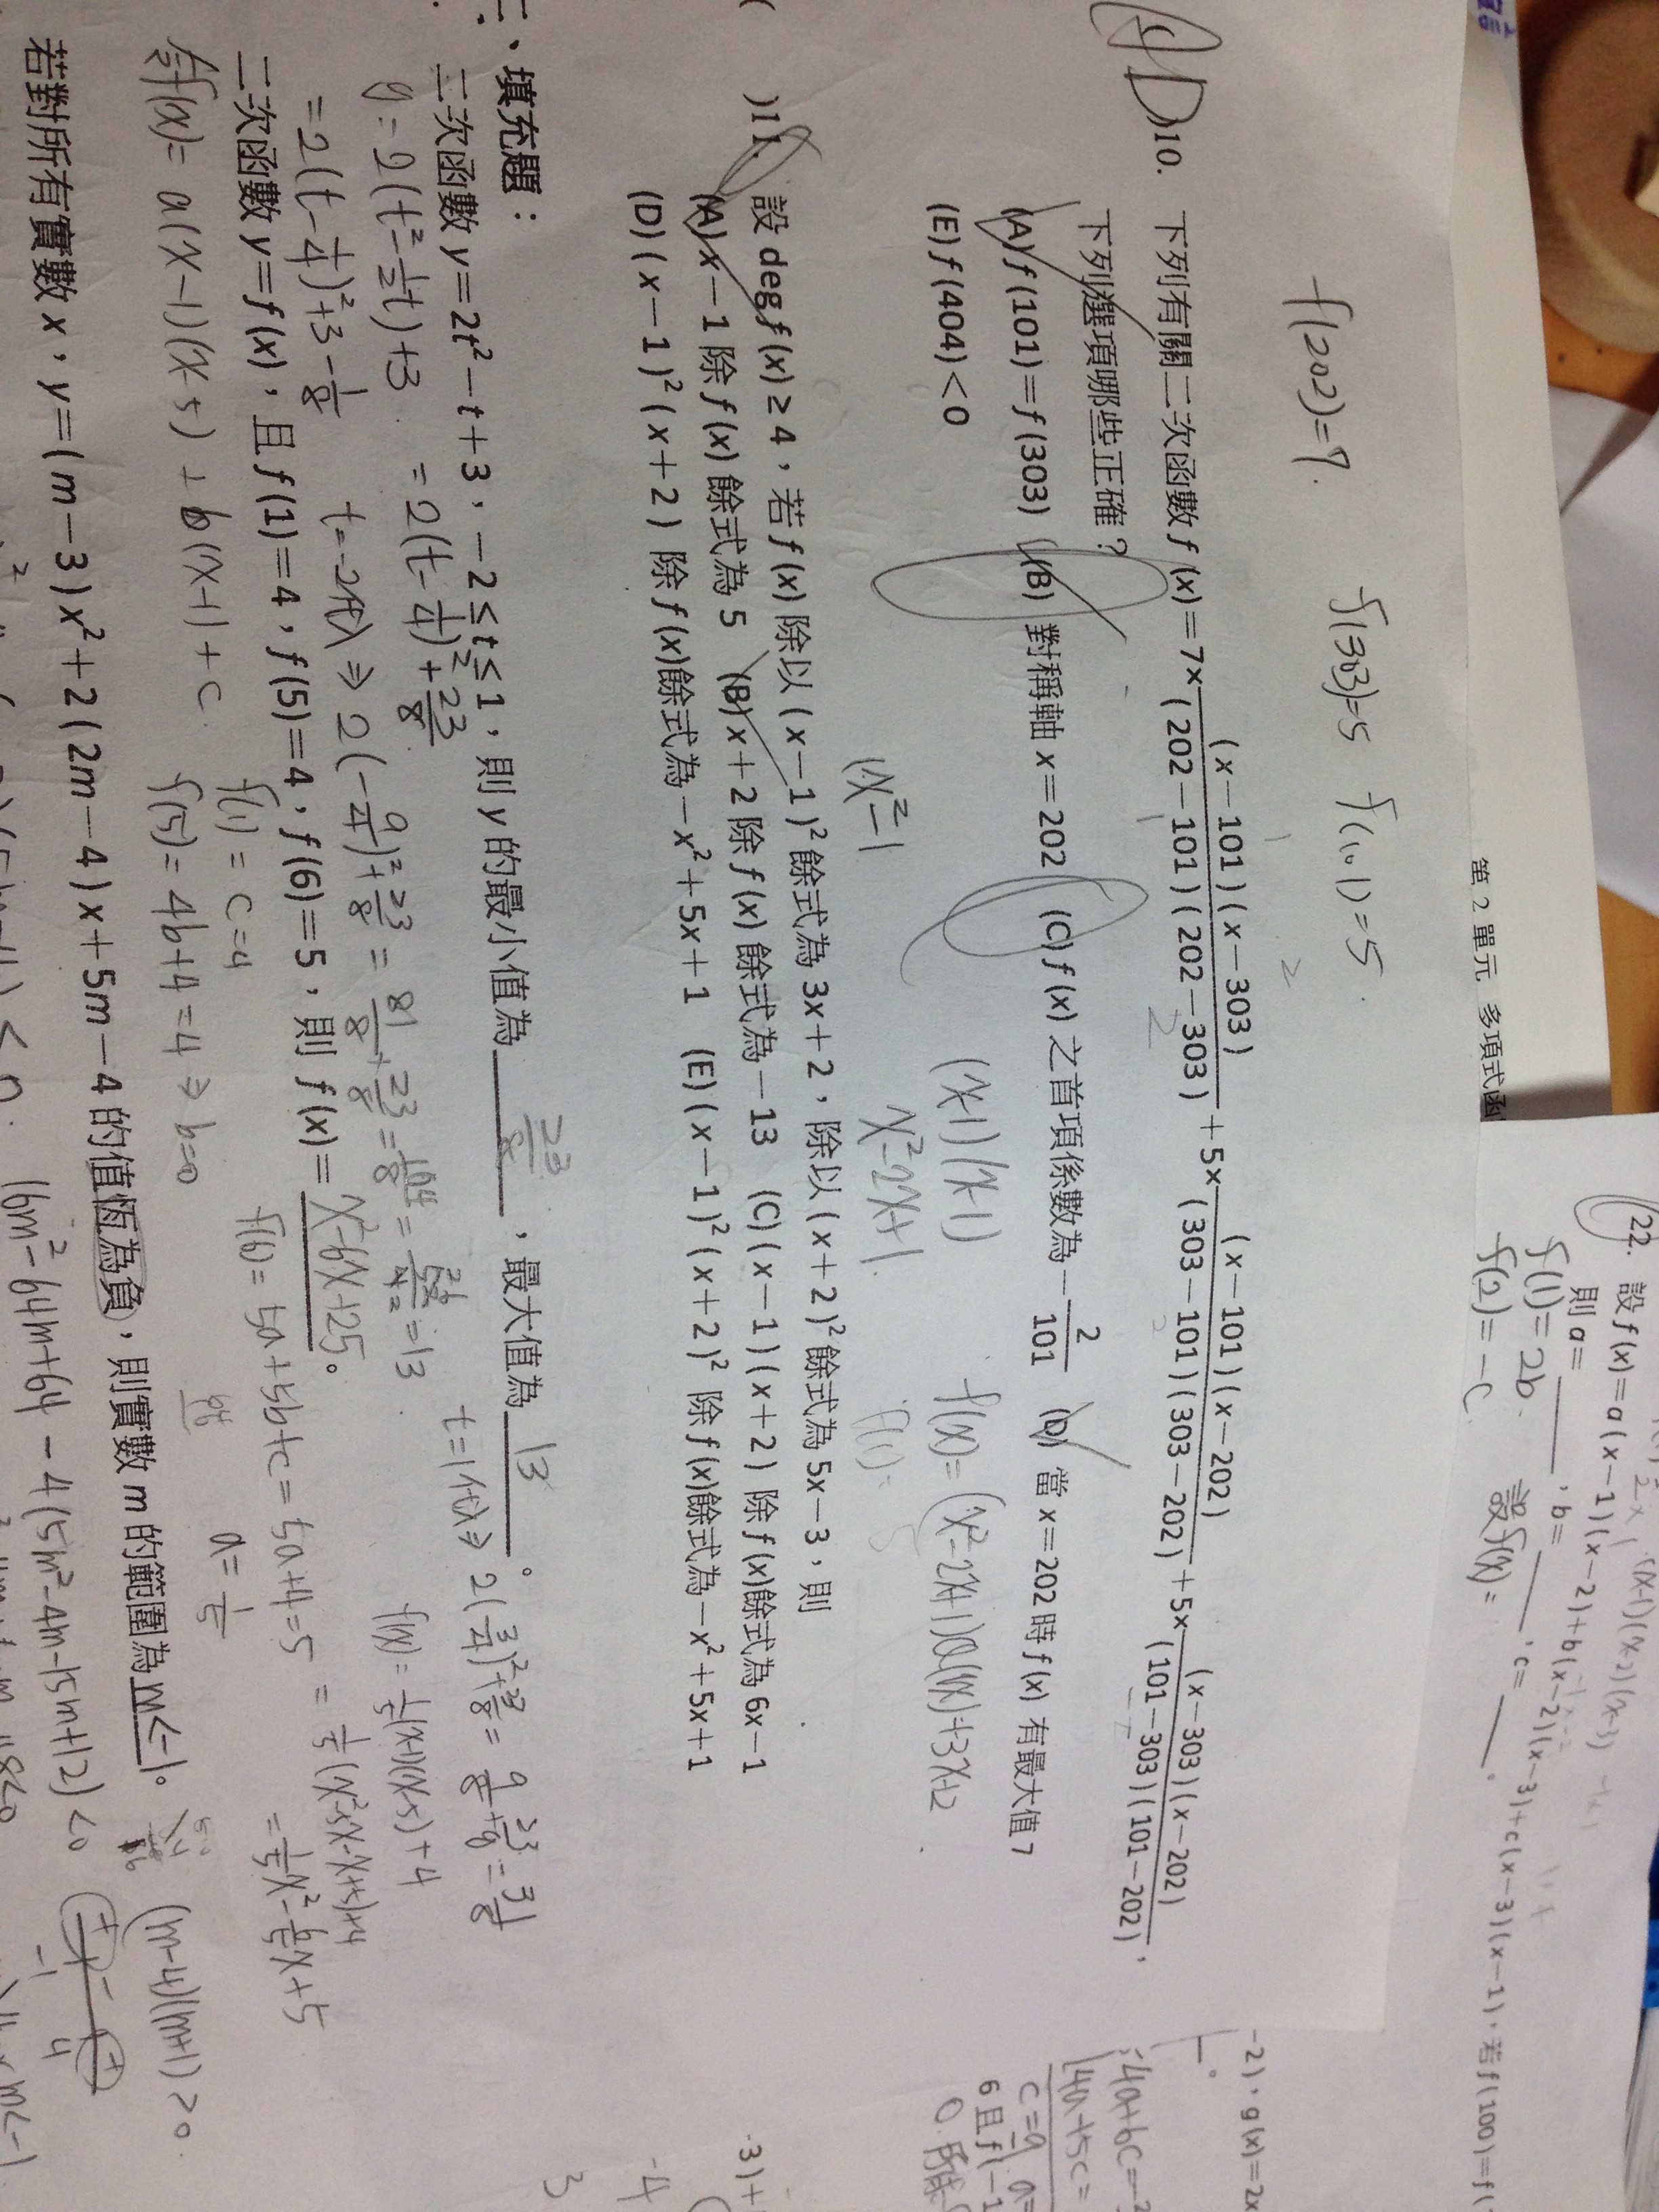 第 2 單元 多項式函
f(202)=7. f(303)=5 f(101)=5.
10. 下列有關二次函數 f(x)=7×(x-101)(x-303)/(202-101)(202-303)+5×(x-101)(x-202)/(303-101)(303-202)+5×(x-303)(x-202)/(101-303)(101-202),
下列選項哪些正確?
(A) f(101)=f(303) (B) 對稱軸 x=202 (C) f(x) 之首項係數為 -2/101 (D) 當 x=202 時 f(x) 有最大值 7
(E) f(404)<0
(x-1)(x-1) f(x)=(x²-2x+1)Q(x)+3x+2
x²-2x+1.
( )11. 設 deg f(x)≥4,若 f(x) 除以 (x-1)² 餘式為 3x+2,除以 (x+2)² 餘式為 5x-3,則
(A) x-1 除 f(x) 餘式為 5 (B) x+2 除 f(x) 餘式為 -13 (C) (x-1)(x+2) 除 f(x)餘式為 6x-1
(D) (x-1)²(x+2) 除 f(x)餘式為 -x²+5x+1 (E) (x-1)²(x+2)² 除 f(x)餘式為 -x²+5x+1
二、填充題:
二次函數 y=2t²-t+3,-2≤t≤1,則 y 的最小值為 23/8,最大值為 13。
y=2(t²-1/2t)+3. =2(t-1/4)²+23/8 t=1代入⇒2(3/4)²+23/8=9/8+23/8=31/8
=2(t-1/4)²+3-1/8 t=-2代入⇒2(-9/4)²+23/8=81/8+23/8=104/8=13.
二次函數 y=f(x),且 f(1)=4,f(5)=4,f(6)=5,則 f(x)= x²-6x+25。
設f(x)=a(x-1)(x-5)+b(x-1)+c.
f(1)=c=4
f(5)=4b+4=4⇒b=0
f(6)=5a+5b+c=5a+4=5
a=1/5
f(x)=1/5(x-1)(x-5)+4
=1/5(x²-5x-x+5)+4
=1/5x²-6/5x+5
若對所有實數 x,y=(m-3)x²+2(2m-4)x+5m-4 的值恆為負,則實數 m 的範圍為 m<-1。
16m²-64m+64-4(5m²-4m-15m+12)<0
(m-4)(m+1)>0.
-1 4
22. 設 f(x)=a(x-1)(x-2)+b(x-2)(x-3)+c(x-3)(x-1),若 f(100)=f(
則 a=____,b=____,c=____。
f(1)=2b.
f(2)=-c
設f(x)=
-2),g(x)=2x
c=9
6 且 f(-1
3)+
-4
3